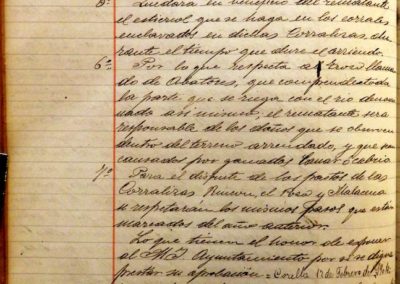 5ª Quedará en beneficio del rematante
el estiercol que se haga en los corrales
enclavados en dichas Corralizas, du-
rante el tiempo que dure el arriendo.
6ª Por lo que respecta al Trozo llama-
do de Abatores, que comprende toda
la parte que se riega con el rio denomi-
nado asi mismo, el rematante será
responsable de los daños que se observen
dentro del terreno arrendado, y que sean
causados por ganados lanar ó cabrio
7ª Para el disfrute de los pastos de las
Corralizas Rincon, el Raso y
se respetarán los mismos pasos que están
marcados del año anterior.
Lo que tienen el honor de esponer
al M. I. Ayuntamiento por si se digna
prestar su aprobación = Corella 12 de Febrero de